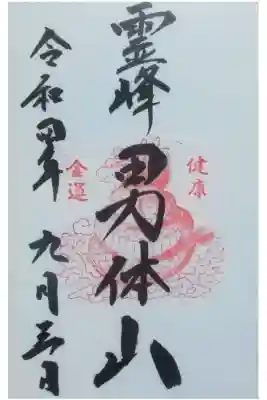 霊峰 男体山
健康
金運
令和四年 九月三日